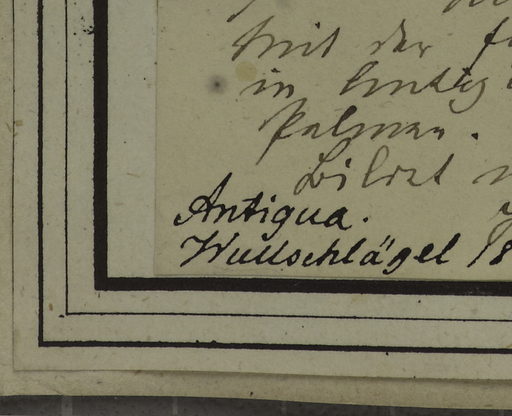 mit der
in Antig
Palman.
Bildet
Antigua.
Wullschlägel 18